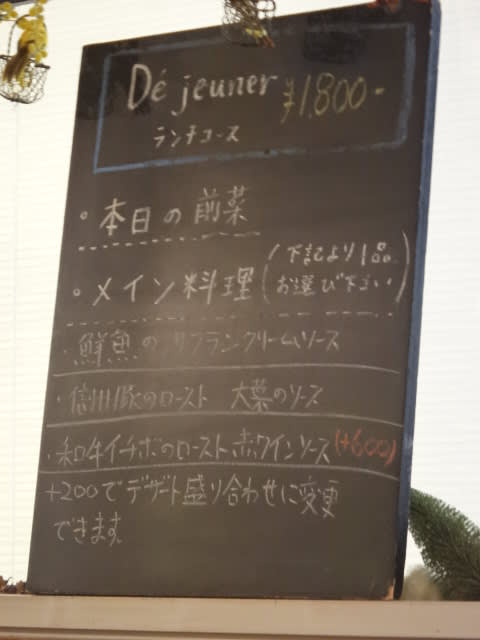 Déjeuner ¥1.800-
ランチコース
・本日の前菜
・メイン料理 (下記より1品 お選び下さい)
・鮮魚のサフランクリームソース
・信州豚のロースト 大葉のソース
・和牛イチボのロースト赤ワインソース(+600)
+200でデザート盛り合わせに変更
できます。